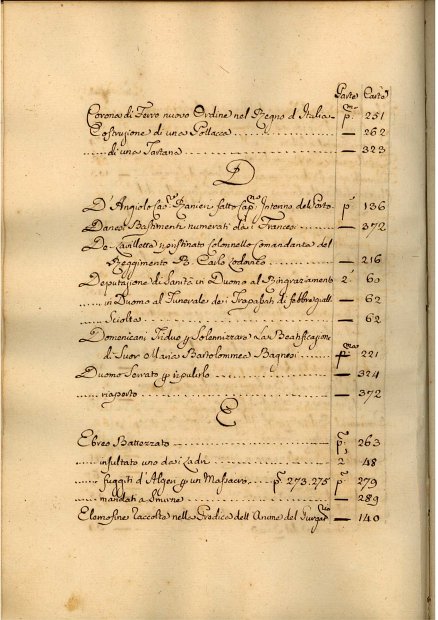 Parte Carte
Corona di Ferro nuovo Ordine nel Regno d'Italia - p.ma 251
Costruzione di una Pollacca — 262
di una Tartana — 323
D
D'Angiolo Cap.o Ranieri fatto Cap.no Interino del Porto p.a 136
Danesi Bastimenti numerati dai Francesi — 372
De-Cavilletta ripristinato Colonnello Comandante del
Reggimento R. Carlo Lodovico — 216
Deputazione di Sanità in Duomo al Ringraziamento 2.a 60
in Duomo al Funerale dei Trapassati di febbre giall. — 62
Sciolta — 62
Domenicani Triduo p Solennizzare La Beatificazione
di Suor Maria Bartolommea Bagnesi p.ma 221
Duomo Serrato p ripulirlo — 324
riaperto — 372
E
Ebreo Battezzato p.a 263
insultato uno dai Ladri 2. 48
fuggiti d'Algeri p un Massacro p.a 273.275 p.a 279
mandati a Smirne — 289
Elemosine raccolte nella Predica dell'Anime del Purgat.rio — 140